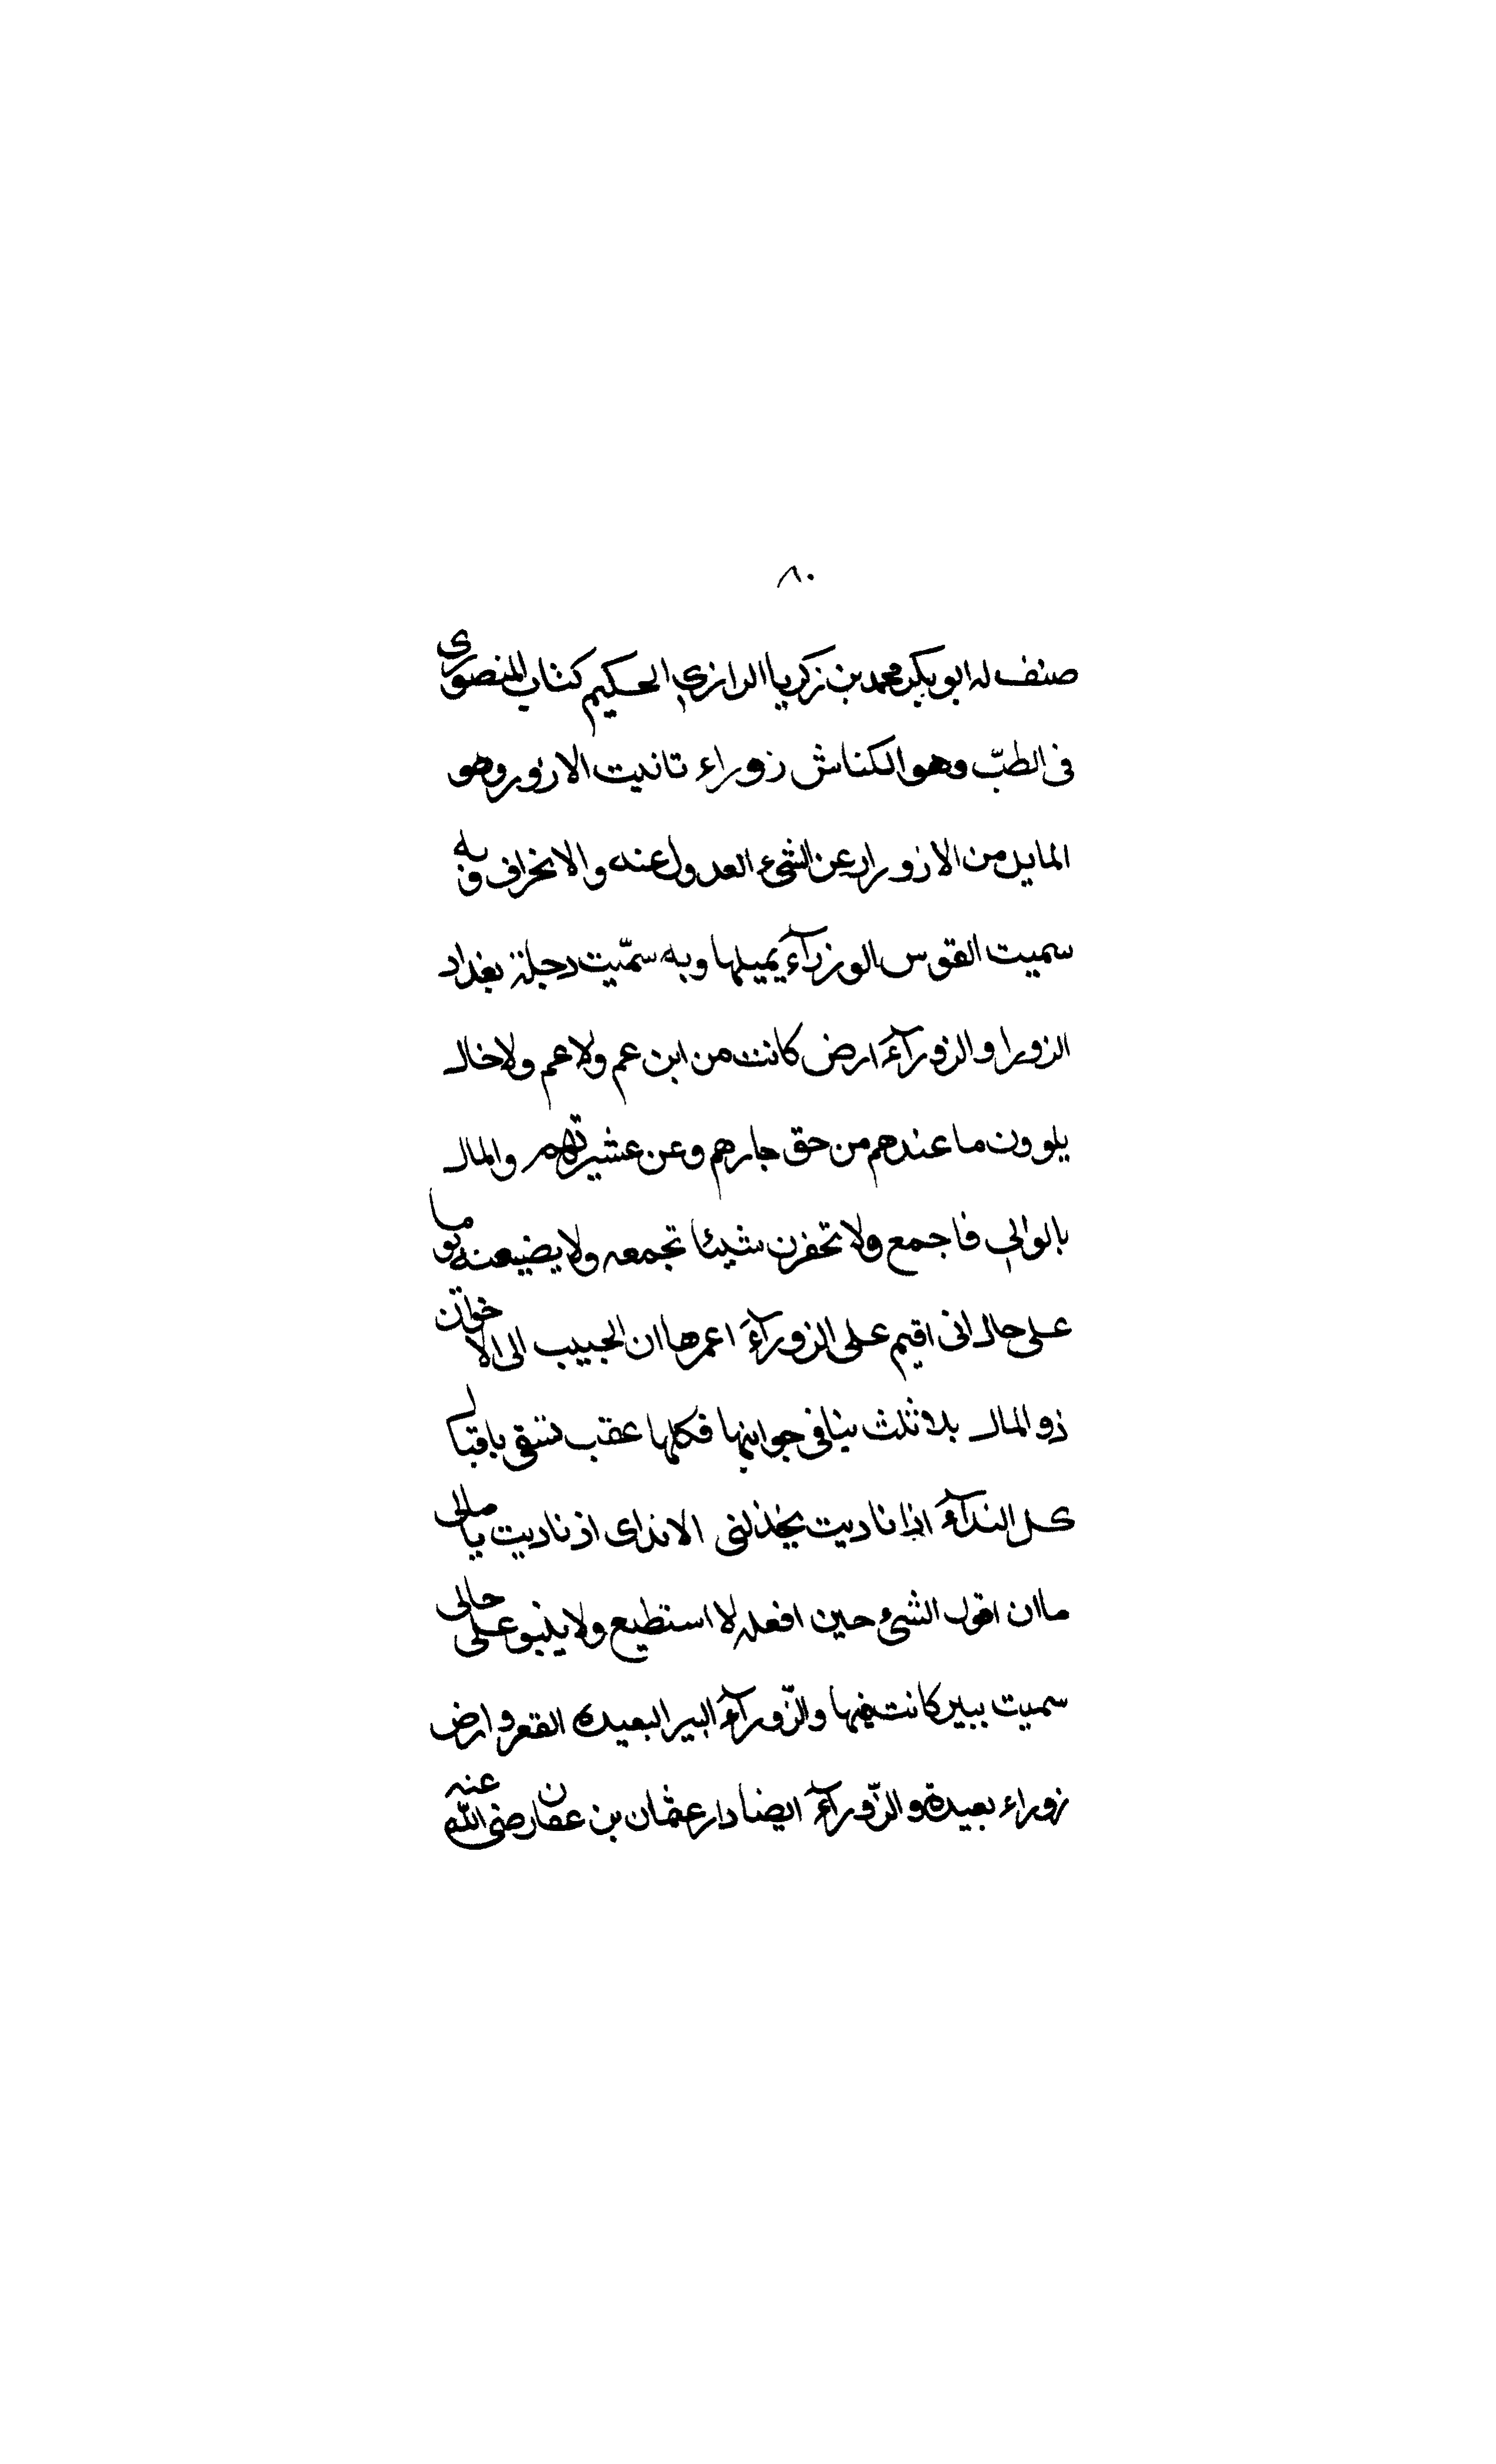 ٨٠
صنف له ابو بكر محمد بن زكريا الرازي الحكيم كتاب المنصوري
فى الطبّ وهو الكناش زوراء تانيت الازور وهو
المايل من الازورار عن الشىء العدول عنه والانحراف وبه
سميت القوس الوزرآء يميلها وبه سمّيت دجلة بغداد
الزورا والزورآء ارض كانت من ابن عم ولا عم ولا خال
يلوون ما عندهم من حق جارهم وعن عشيرتهم والمال
بالوالي فاجمع ولا تحفرن شيئا تجمعه ولا يضيعنه يوما
على حال انى اقيم على الزورآء اعمرها ان الحبيب الى الاخوان
ذو المال بلا ثلث بنا فى جوابنها فكلها عقب تسقى باقبال
كل الندآء اذا ناديت يخذلنى الا نداى اذ ناديت يا مالى
ما ان اقول الشىء حين افعله لا استطيع ولا ينبو على حالى
سميت ببير كانت فيها والزّورآء البير البعيدة القعر وارض
زوراء بعيدة والزّورآء ايضا دار عثمان بن عفان رضى الله عنه